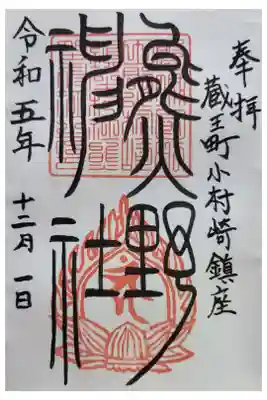 奉拝
蔵王町小村崎鎮座
熊野
神社
令和五年
十二月一日